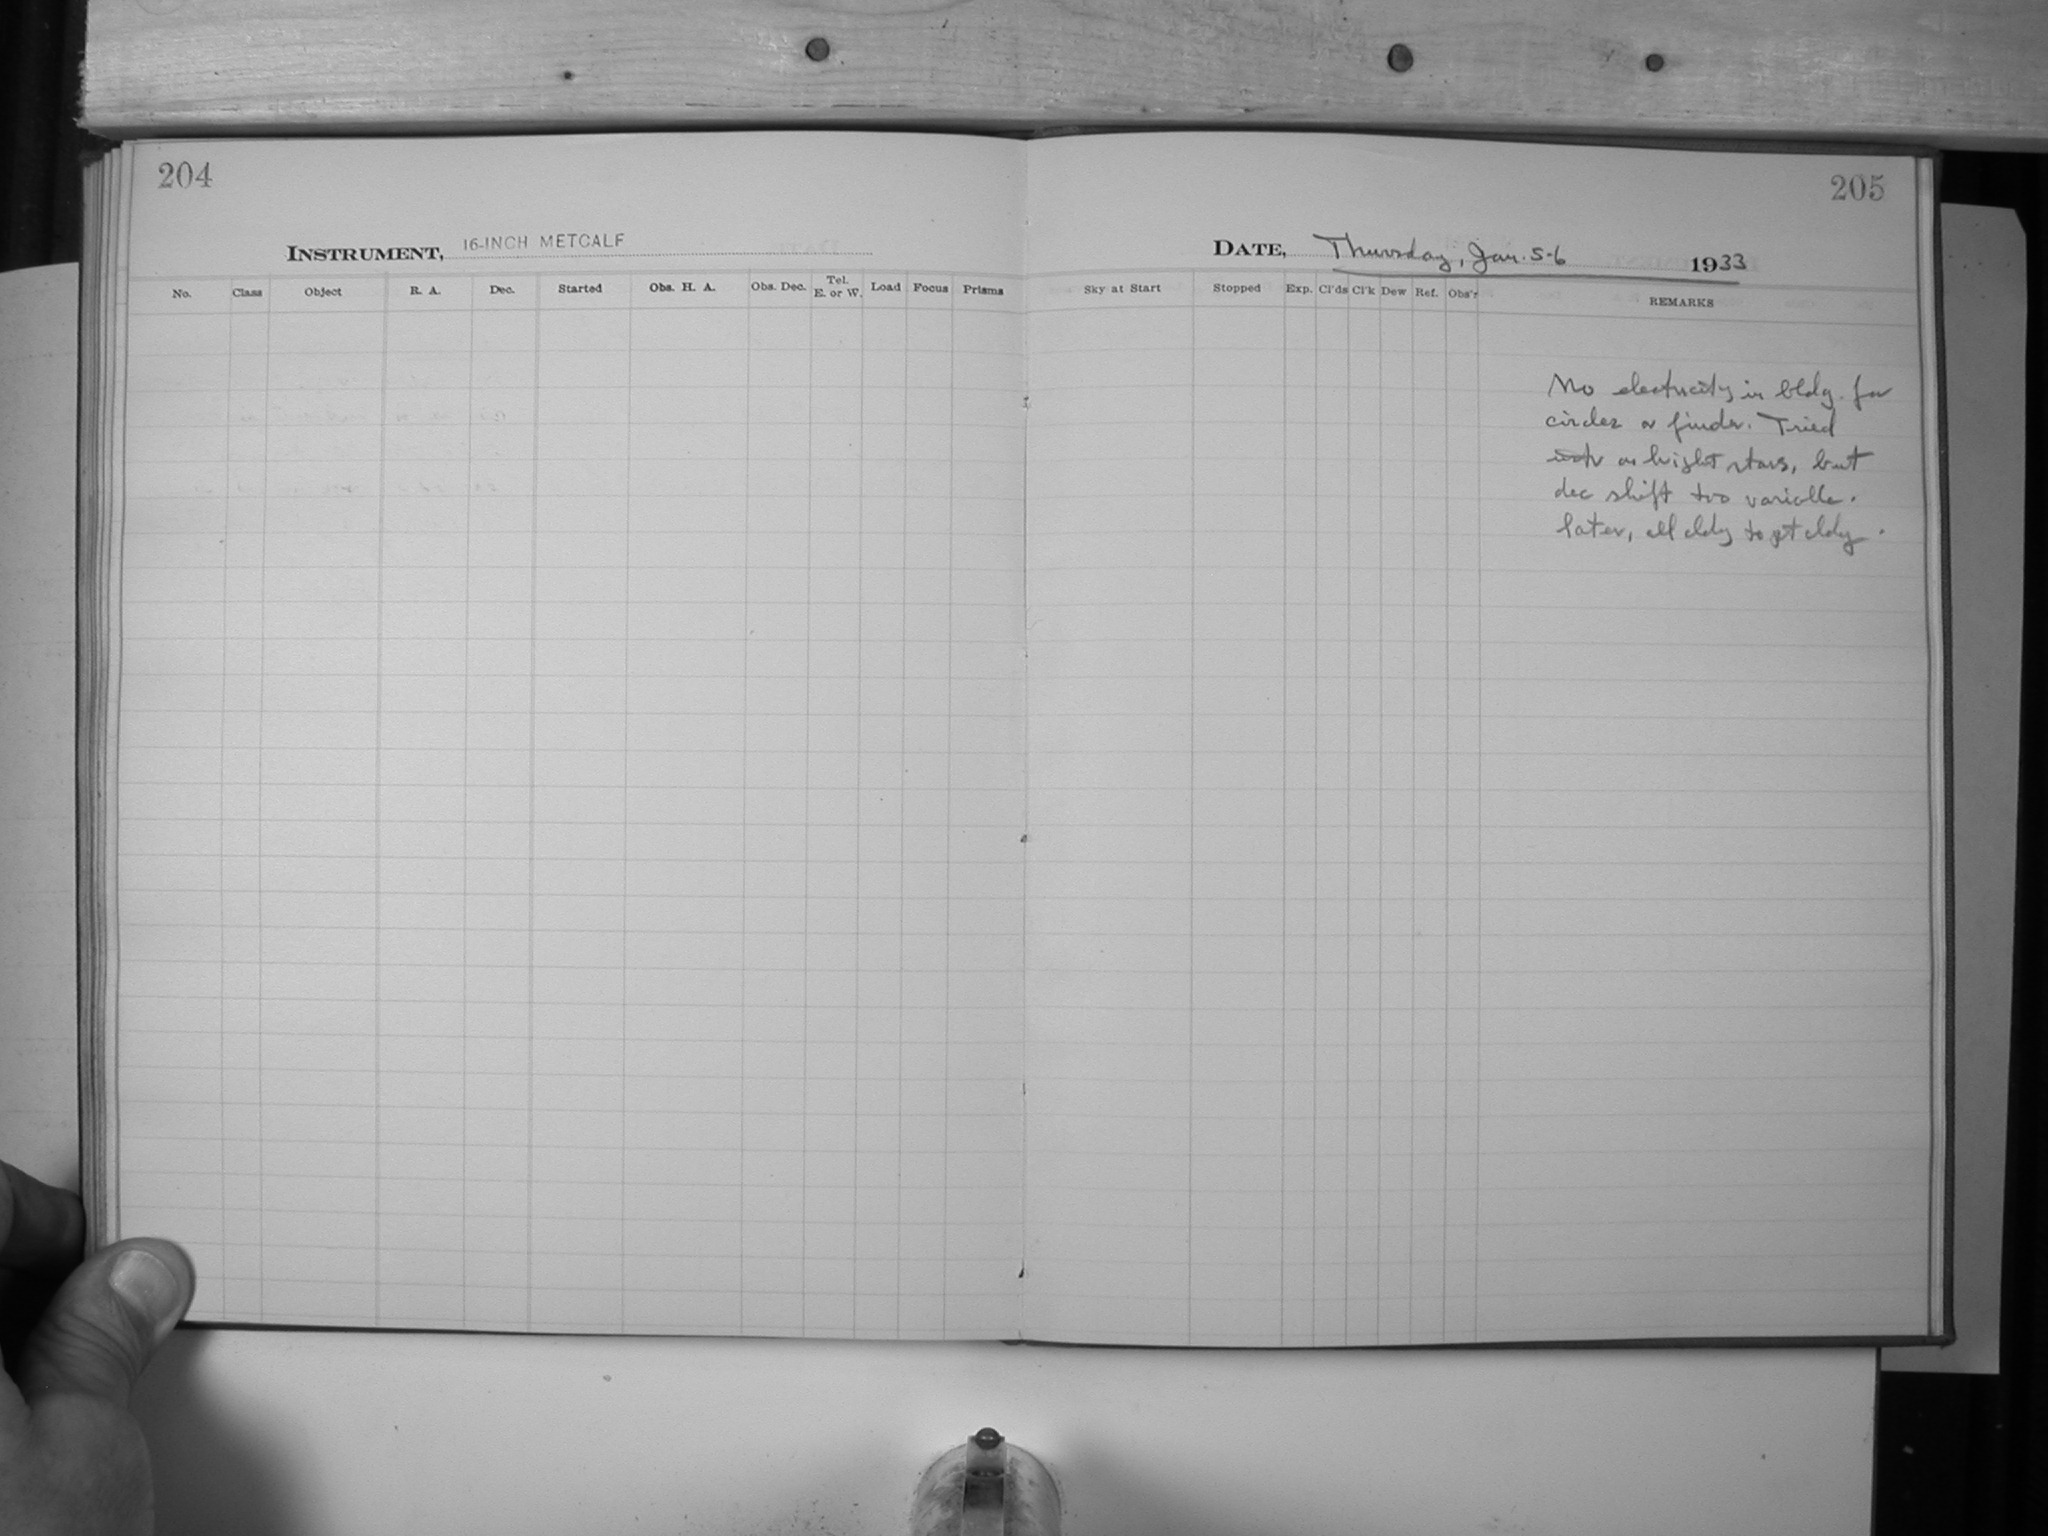 204
205
INSTRUMENT, 16-INCH METCALF
DATE, Thursday, Jan. 5-6 1933
No. Class Object R. A. Dec. Started Obs. H. A. Obs. Dec. Tel. E. or W. Load Focus Prisms
Sky at Start Stopped Exp. Cl'ds Cl'k Dew Ref. Obs'r REMARKS
No electricity in bldg. for
circles or finder. Tried
on bright stars, but
dec shift too variable.
later, all cldy to pt cldy.